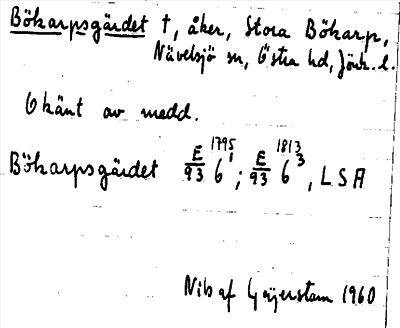 Bökarpsgärdet †, åker, Stora Bökarp,
Nävelsjö sn, Östra hd, Jönk. l.
Okänt av medd.
Bökarpsgärdet E/93 6 1795 1; E/93 6 1813 3, LSA
Nils af Geijerstam 1960